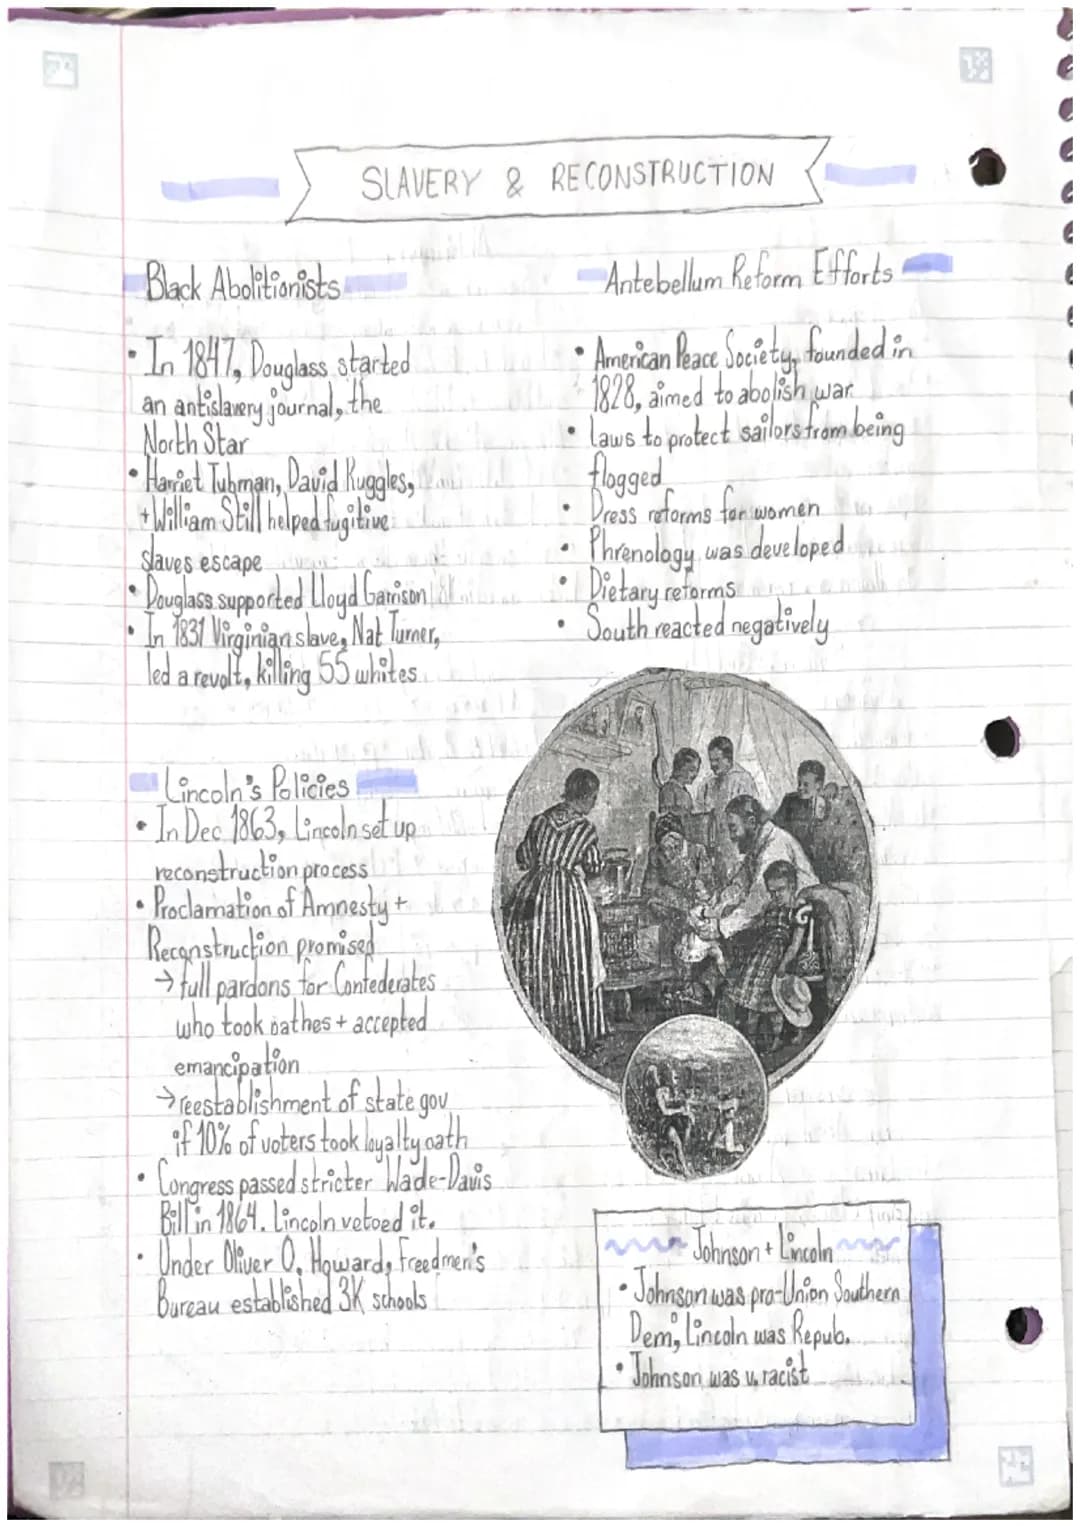 SLAVERY & RECONSTRUCTION
Black Abolitionists
• In 1847, Douglass started
an antislavery journal, the
North Star
• Harriet Tubman, David Ruggles,
+ William Still helped fugitive
slaves escape
• Douglass supported Lloyd Garrison
• In 1831 Virginian slave, Nat Turner,
led a revolt, killing 55 whites
Antebellum Reform Efforts
• American Peace Society, founded in
1828, aimed to abolish war
• Laws to protect sailors from being
flogged
• Dress reforms for women
• Phrenology was developed
• Dietary reforms
• South reacted negatively
Lincoln's Policies
• In Dec 1863, Lincoln set up
reconstruction process
• Proclamation of Amnesty +
Reconstruction promised
→ full pardons for Confederates
who took oathes + accepted
emancipation
→ reestablishment of state gov
if 10% of voters took loyalty oath
• Congress passed stricter Wade-Davis
Bill in 1864. Lincoln vetoed it.
• Under Oliver O. Howard, Freedmen's
Bureau established 3K schools
Johnson + Lincoln
• Johnson was pro-Union Southern
Dem, Lincoln was Repub.
• Johnson was v. racist